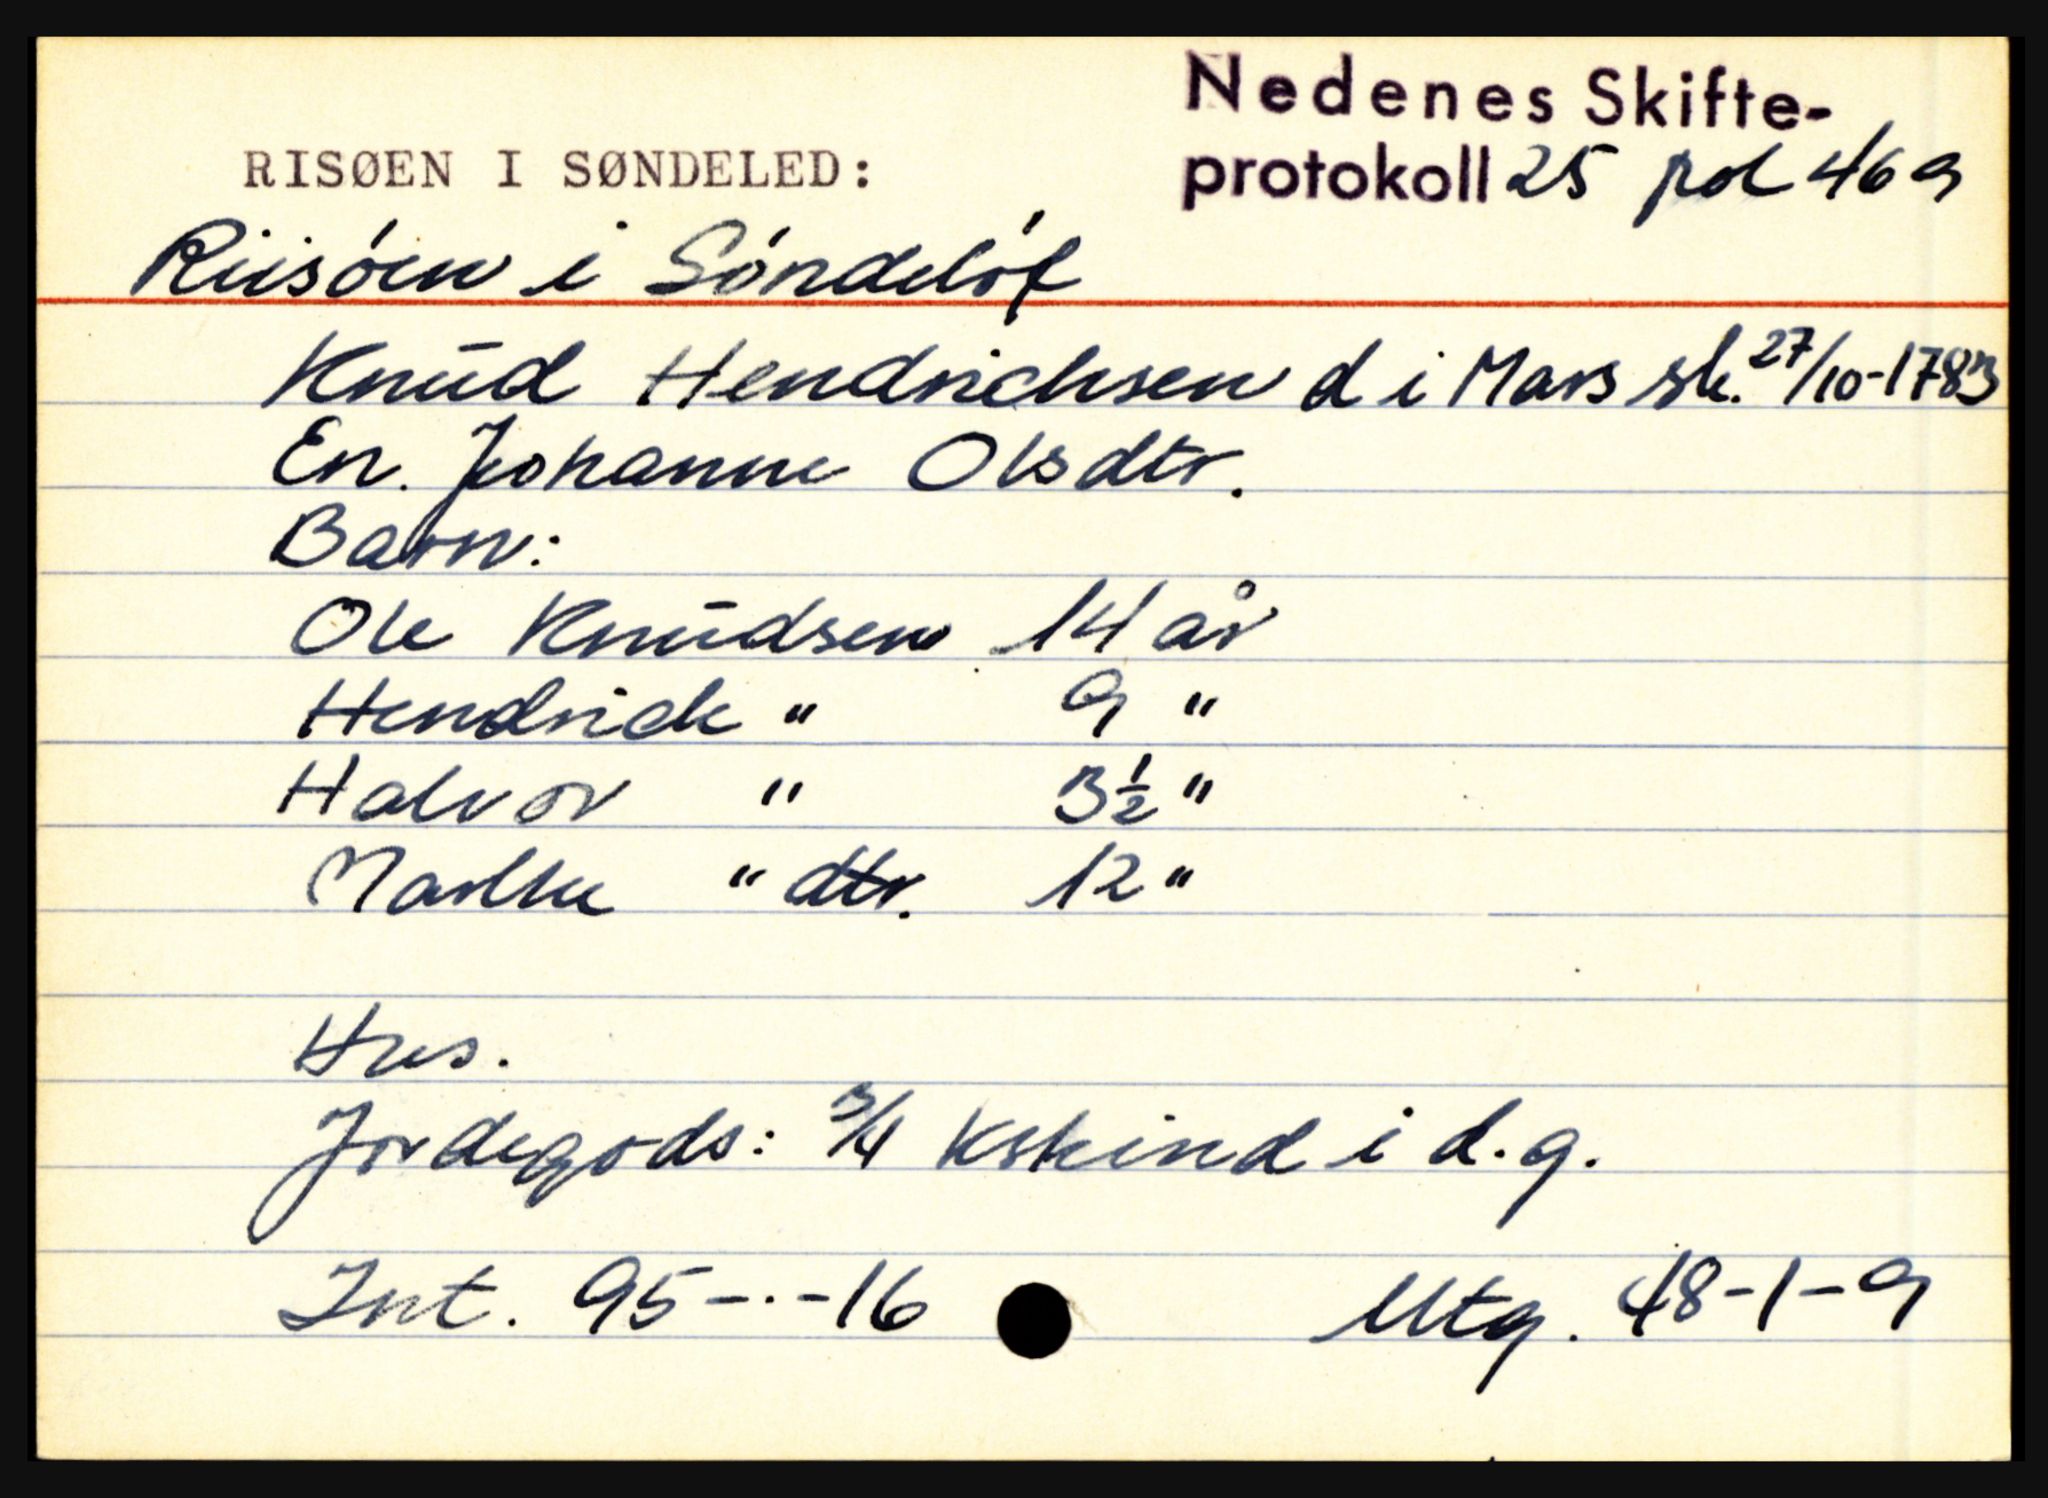 Nedenes Skifte-
protokoll 25 fol 46 a
RISØEN I SØNDELED:
Riisóen i Söndelöf
Knūd Hendrichsen d i Mars sk. 27/10-1783
En. Johanne Olsdtr.
Barn:
Ole Knūdsen 14 år
Hendrick " 9 "
Halvor " 3½ "
Marthe " dtr. 12 "
Hus.
Jordegods: 3/4 kskind i d.g.
Int. 95-.-16 Utg. 48-1-9